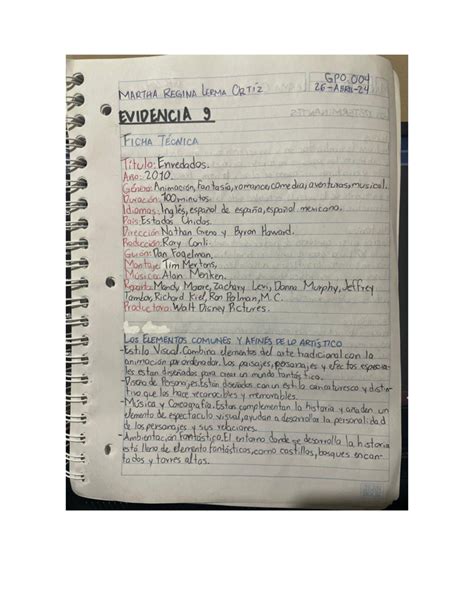 GPO.004
MARTHA REGINA LERMA ORTÍZ 26-ABRIL-24
EVIDENCIA 9
FICHA TÉCNICA
Título: Enredados.
Año: 2010.
Género: Animación, fantasía, romance, comedia, aventuras, musical.
Duración: 100 minutos.
Idiomas: Inglés, español de españa, español mexicano.
País: Estados Unidos.
Dirección: Nathan Greno y Byron Howard.
Producción: Rory Conli.
Guión: Dan Fogelman.
Montaje: Tim Mertons.
Música: Alan Menken.
Reparto: Mandy Moore, Zachary Levi, Donna Murphy, Jeffrey
Tambor, Richard Kiel, Ron Pelman, M.C.
Productora: Walt Disney Pictures.
LOS ELEMENTOS COMUNES Y AFINES DE LO ARTÍSTICO
-Estilo Visual. Combina elementos del arte tradicional con la
animación por ordenador. Los paisajes, personajes y efectos especia-
les están diseñados para crear un mundo fantástico.
-Diseño de Personajes. Están diseñados con un estilo caricaturesco y distin-
tivo que los hace reconocibles y memorables.
-Música y Coreografía. Estas complementan la historia y añaden un
elemento de espectáculo visual, ayudan a desarrollar la personalidad
de los personajes y sus relaciones.
-Ambientación fantástica. El entorno donde se desarrolla la historia
está lleno de elemento fantásticos, como castillos, bosques encan-
tados y torres altas.